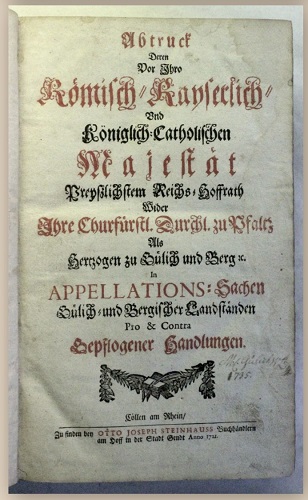 Abtruck
Deren
Vor Ihro
Römisch-Kayserlich-
Und
Königlich-Catholischen
Majestät
Preyßlichstem Reichs-Hoffrath
Wider
Ihre Churfürstl. Durchl. zu Pfaltz
Als
Hertzogen zu Gülich und Berg ꝛc.
In
APPELLATIONS-Sachen
Gülich-und Bergischer Landständen
Pro & Contra
Gepflogener Handlungen.
Cöllen am Rhein/
Zu finden bey OTTO JOSEPH STEINHAUSS Buchhändlern
am Hoff in der Stadt Gendt Anno